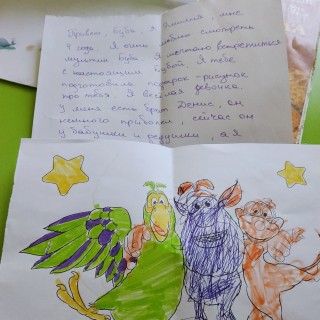 Привет, Буба, я Яшмия, мне
4 года. Я очень люблю смотреть
мультик Буба. Я мечтаю встретиться
с настоящим Бубой. Я тебе
подготовила подарок - рисунок
про тебя. Я весёлая девочка.
У меня есть брат Денис, он
немного приболел, сейчас он
у бабушки и дедушки, а я